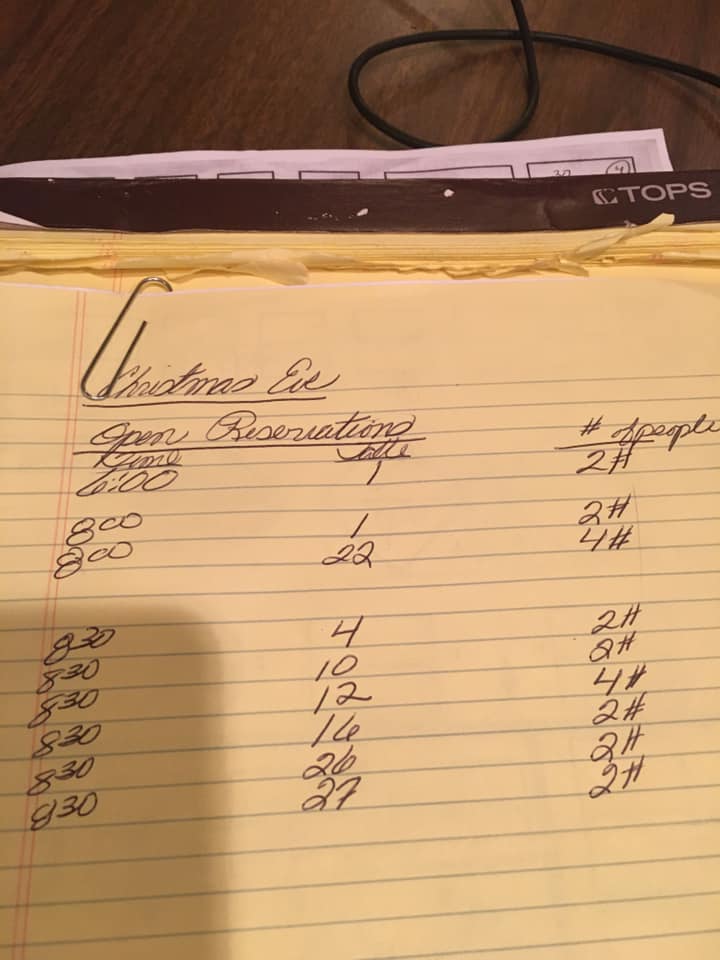 30 4
TOPS
Christmas Eve
Open Reservations # of people
Time Table 2#
6:00 1
8 00 1 2#
8 00 22 4#
8 30 4 2#
8 30 10 2#
8 30 12 4#
8 30 16 2#
8 30 26 2#
8 30 27 2#